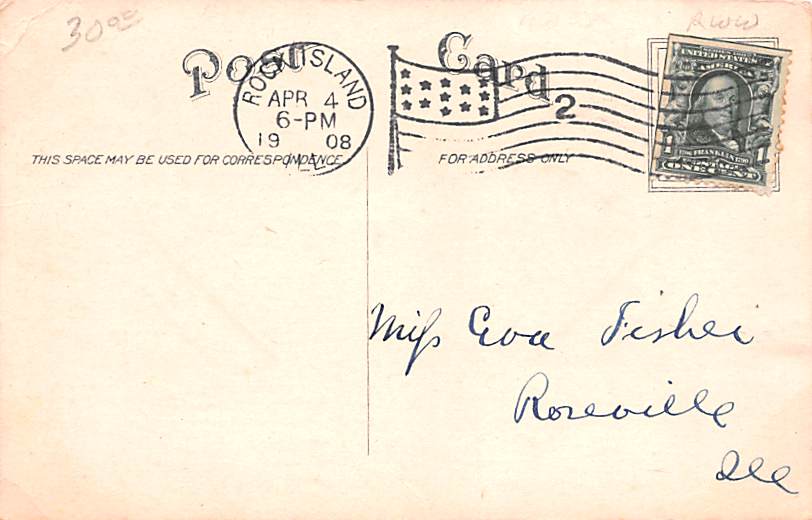 30.00
RWW
Post Card
ROCK ISLAND
APR 4
6-PM
1908
ILL.
2
UNITED STATES OF AMERICA
1 1
POSTAGE
ONE CENT
THIS SPACE MAY BE USED FOR CORRESPONDENCE
FOR ADDRESS ONLY
Miss Eva Fisher
Roseville
Ill